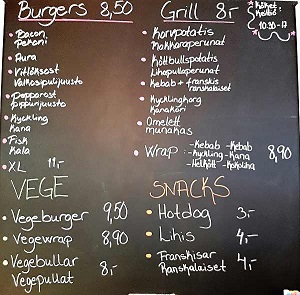 Burgers 8,50
• Bacon
Pekoni
• Aura
• Vitlöksost
Valkosipulijuusto
• Pepparost
Pippurijuusto
• Kyckling
Kana
• Fisk
Kala
• XL 11,-
VEGE
• Vegeburger 9,50
• Vegewrap 8,90
• Vegebullar
Vegepullat 8,-
Grill 8,-
• Korvpotatis
Makkaraperunat
• Köttbullspotatis
Lihapullaperunat
• Kebab + franskis
ranskalaiset
• Kycklingkorg
Kanakori
• Omelett
munakas
• Wrap: -Kebab -Kebab
-Kyckling -Kana
-Helkött -Kokoliha 8,90
SNACKS
• Hotdog 3,-
• Lihis 4,-
• Franskisar
Ranskalaiset 4,-
Köket
Keittiö
10.30-17